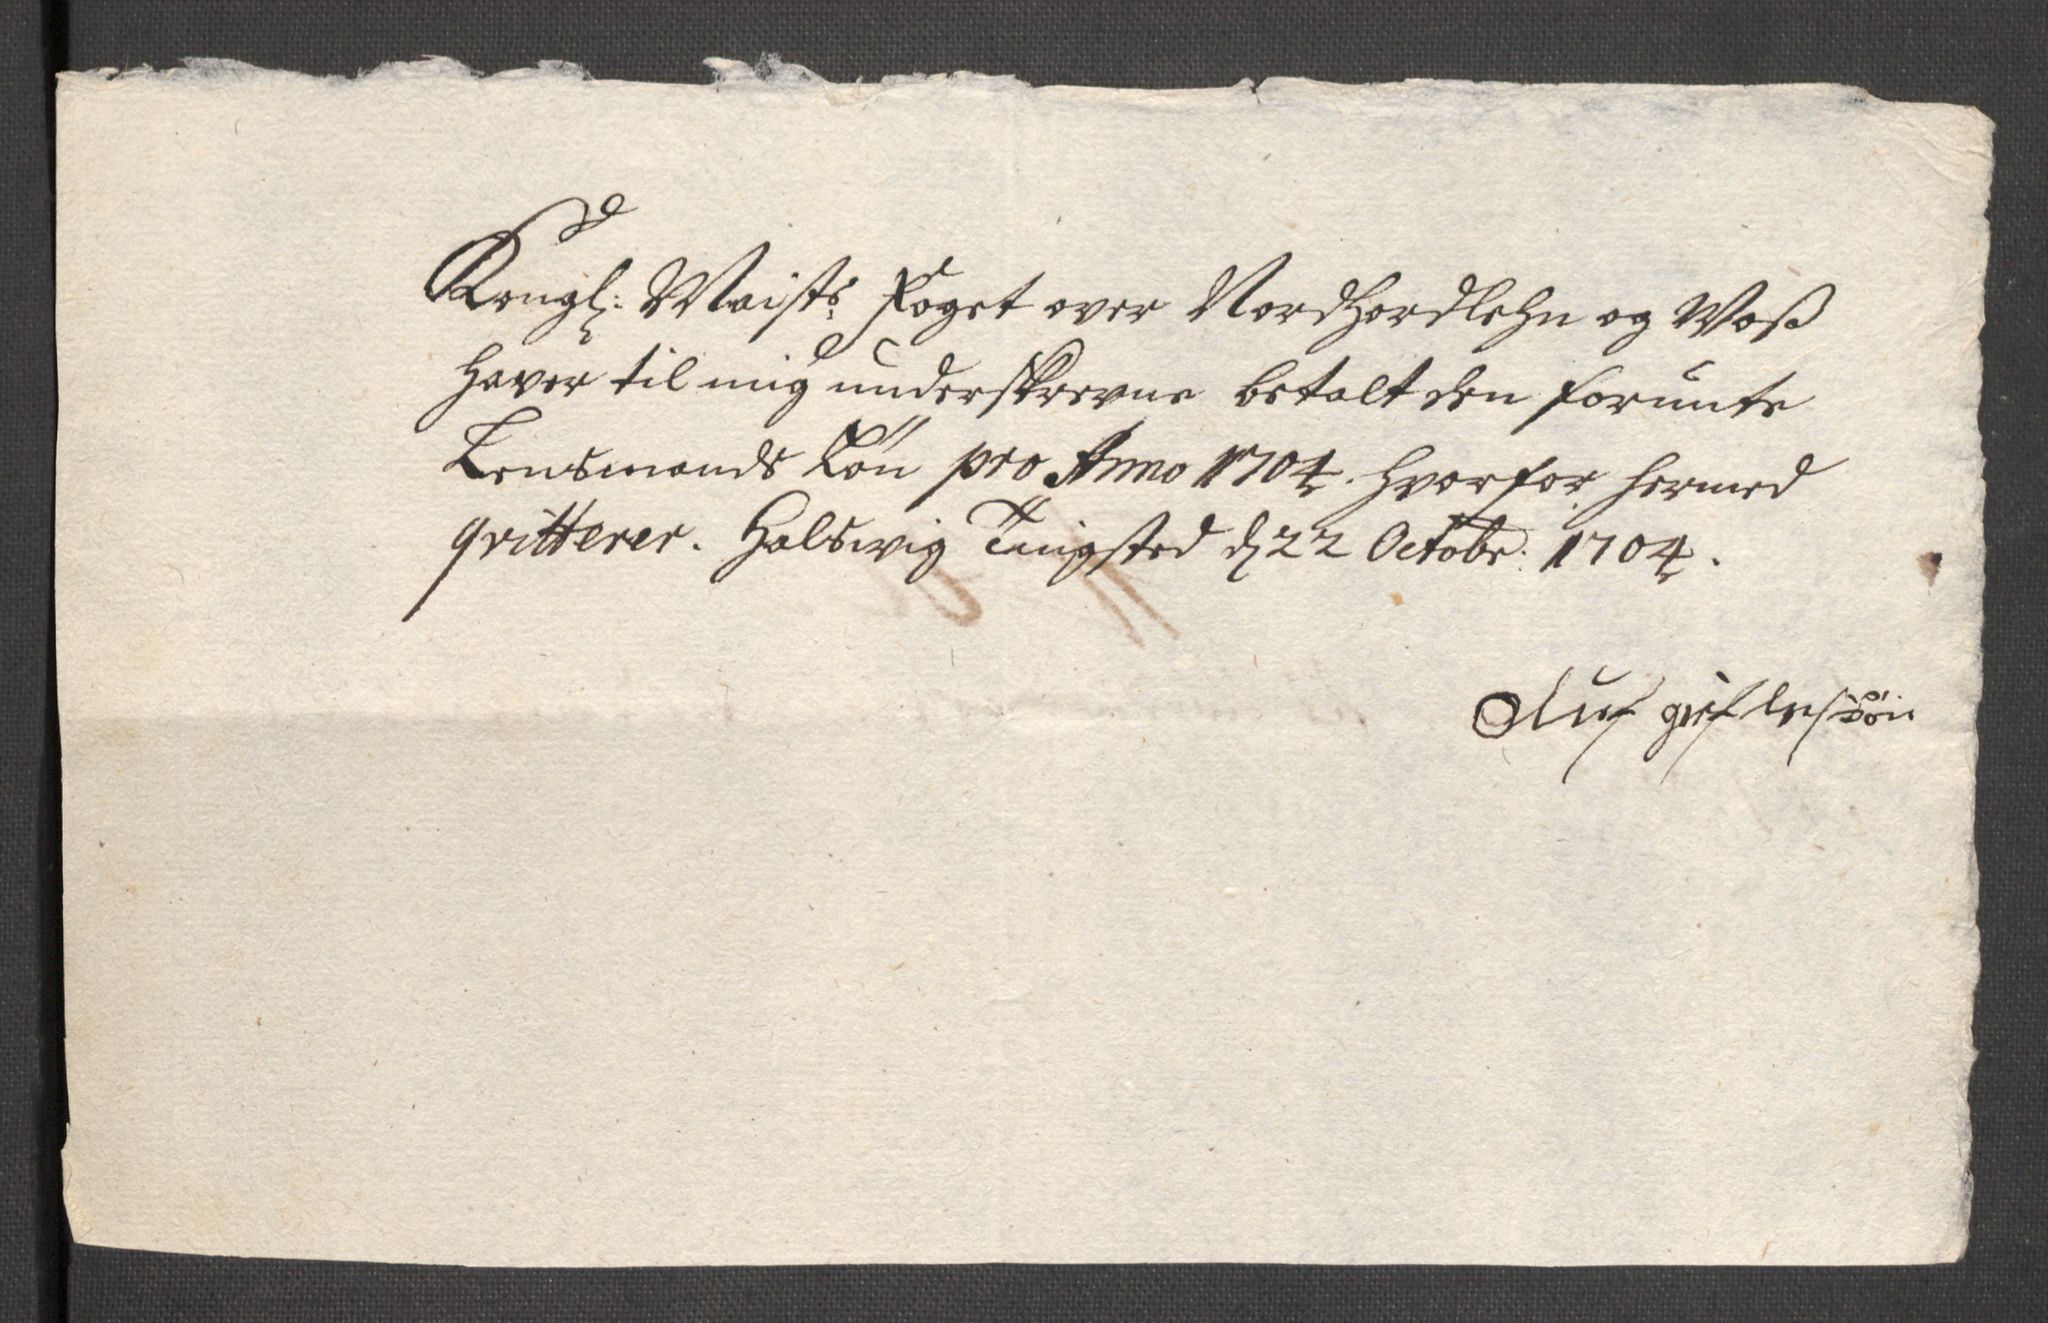 Kongl: Maists. Foget over Nordhordlehn og Woß
haver til mig underskrevne betalt den forunte
Lensmands Løn pro Anno 1704. hvorfor hermed
qvitterer. Halsvig Tingsted d 22 Octobr: 1704.
Oluf